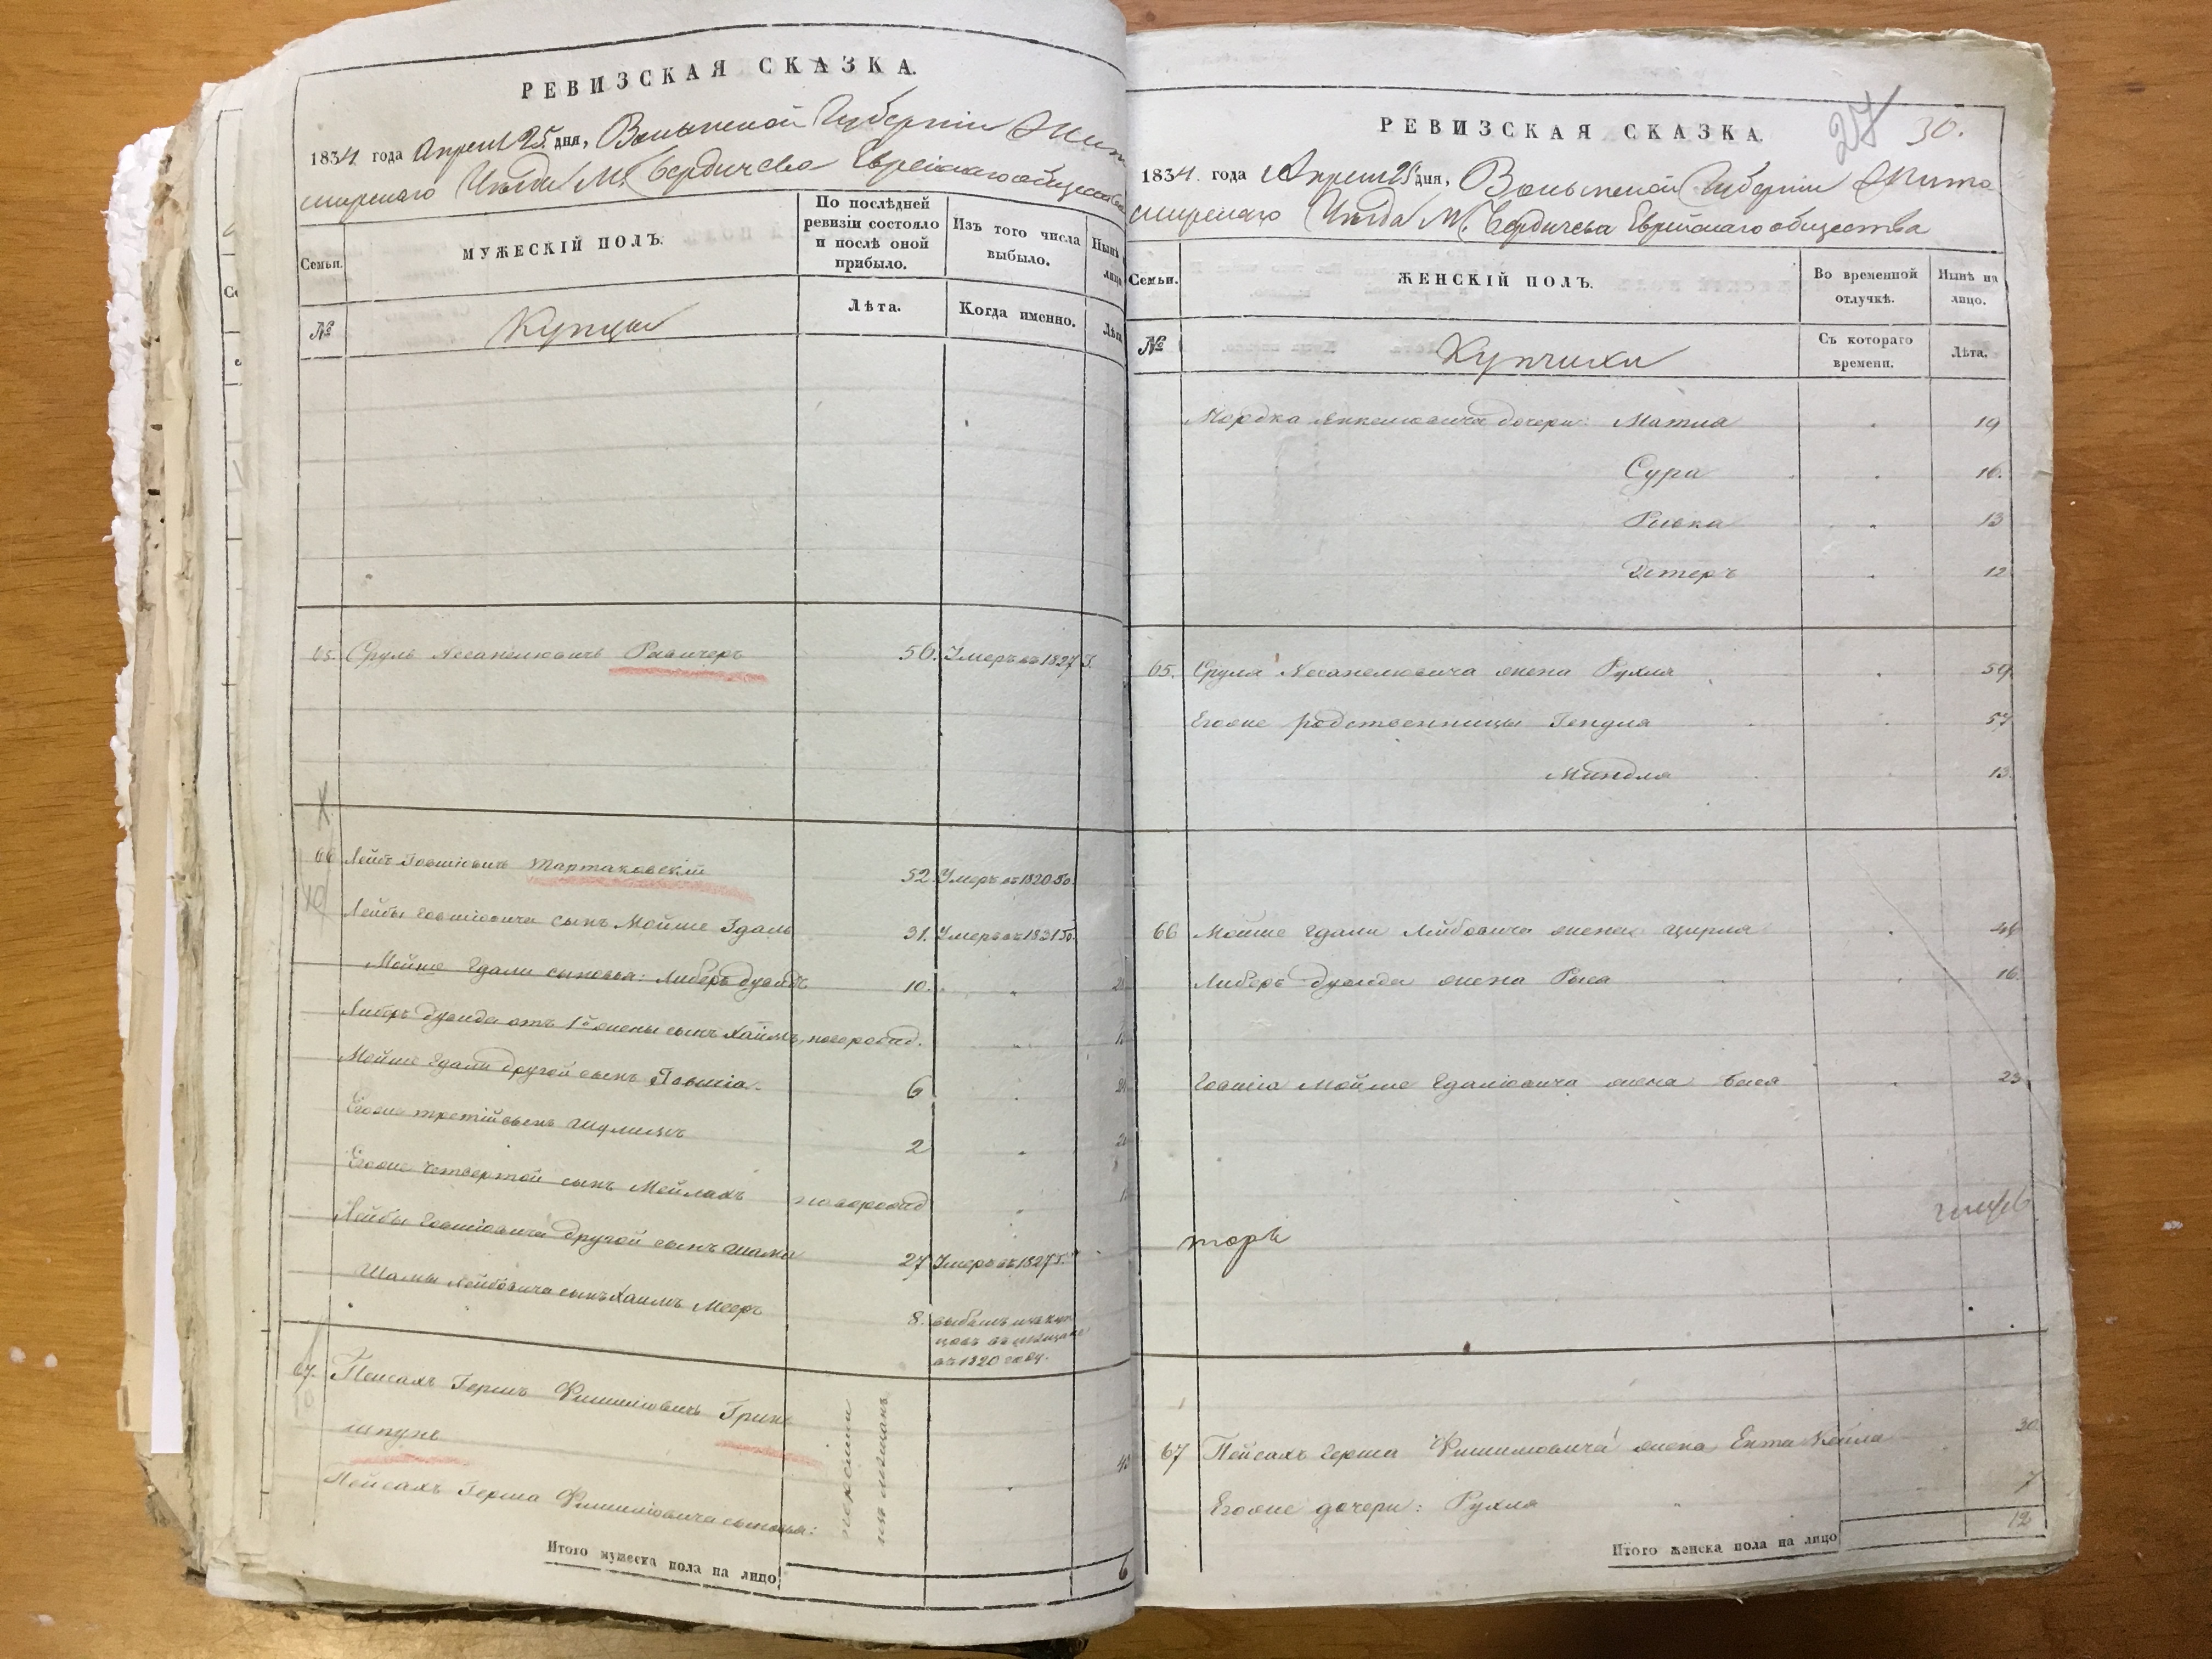 РЕВИЗСКАЯ СКАЗКА.
1834 года Апреля 25 дня, Волынской Губернiи Жито
мирскаго Уезда М. Бердичева Еврейскаго общества
Семьи.
МУЖЕСКIЙ ПОЛЪ.
По послѣдней ревизiи состояло и послѣ оной прибыло.
Изъ того числа выбыло.
Нынѣ
лицо
№
Купцы
Лѣта.
Когда именно.
Лѣта
65. Сруль Рабичеръ 56. Умеръ въ 1827 г.
66 Лейба Iовшiовичъ Тартаковскiй 52 Умеръ въ 1820 го.
Лейбы Iовшiовича сынъ Мойше Гдаль 31. Умеръ въ 1831 го.
Мойше Гдали сыновья: Либеръ Дувидъ 10.
Либеръ Дувида отъ 1й жены сынъ Хаимъ, новорожд.
Мойше Гдали другой сынъ Iовшiа. 6
Егоже третiй сынъ Шулимъ 2
Егоже четвертой сынъ Мейлахъ новорожд
Лейбы Iовшiовича другой сынъ Шама 27 Умеръ въ 1827 г.
Шамы Лейбовича сынъ Хаимъ Мееръ 8. выбылъ изъ куп
цовъ въ мещане
въ 1820 году.
67. Пейсахъ Гершъ Фишилiовичъ Грин
шпунъ
Пейсахъ Герша Фишилiовича сыновья:
изъ мещанъ
Итого мужеска пола на лицо 6
27 30.
РЕВИЗСКАЯ СКАЗКА.
1834. года Апреля 25 дня, Волынской Губернiи Жито
мирскаго Уезда М. Бердичева Еврейскаго общества
Семьи.
ЖЕНСКIЙ ПОЛЪ.
Во временной отлучкѣ.
Нынѣ на лицо.
№
Купчихи
Съ котораго времени.
Лѣта.
Мордка Янкелiовича дочери: Матля 19
Сура 16.
Ривка 13
Эстеръ 12
65. Сруля жена Рухля 59
Егоже родственницы Гендля 57
Миндля 13
66 Мойше Гдали Лейбовича жена Цирля
Либеръ Дувида жена Рыся 16.
Iовшiа Мойше Гдалiовича жена Бася 23
торъ
67 Пейсахъ Герша Фишилiовича жена Ента Кейла 30
Егоже дочери: Рухля 7
Итого женска пола на лицо 12